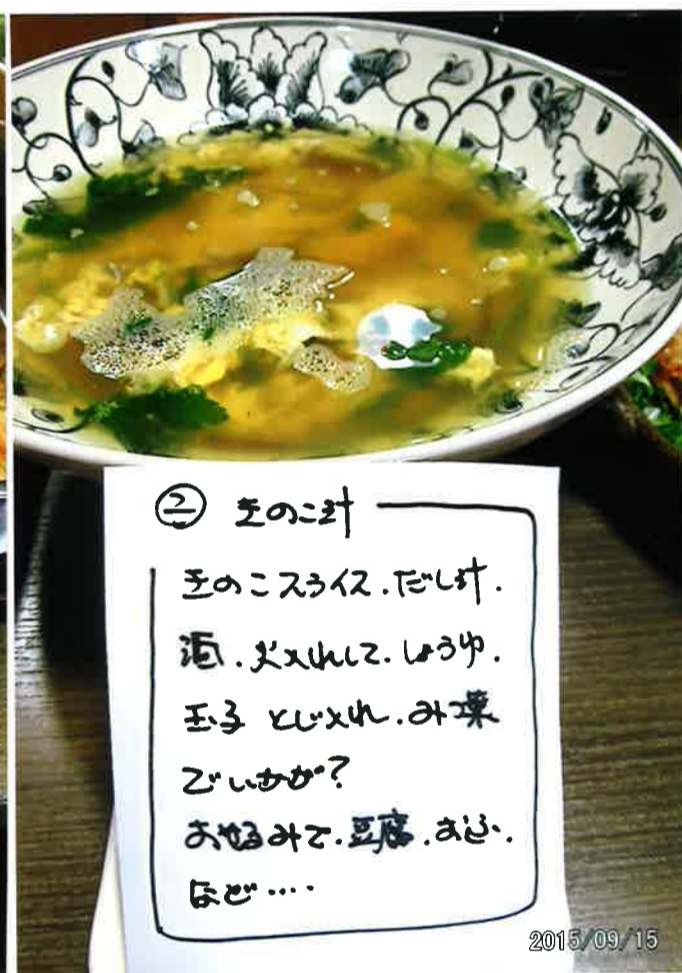 ② きのこ汁
きのこスライス.だし汁.
酒.火入れして.しょうゆ.
玉子 とじ入れ.み葉
でいかが?
お好みで.豆腐.おふ.
など‥‥
2015/09/15